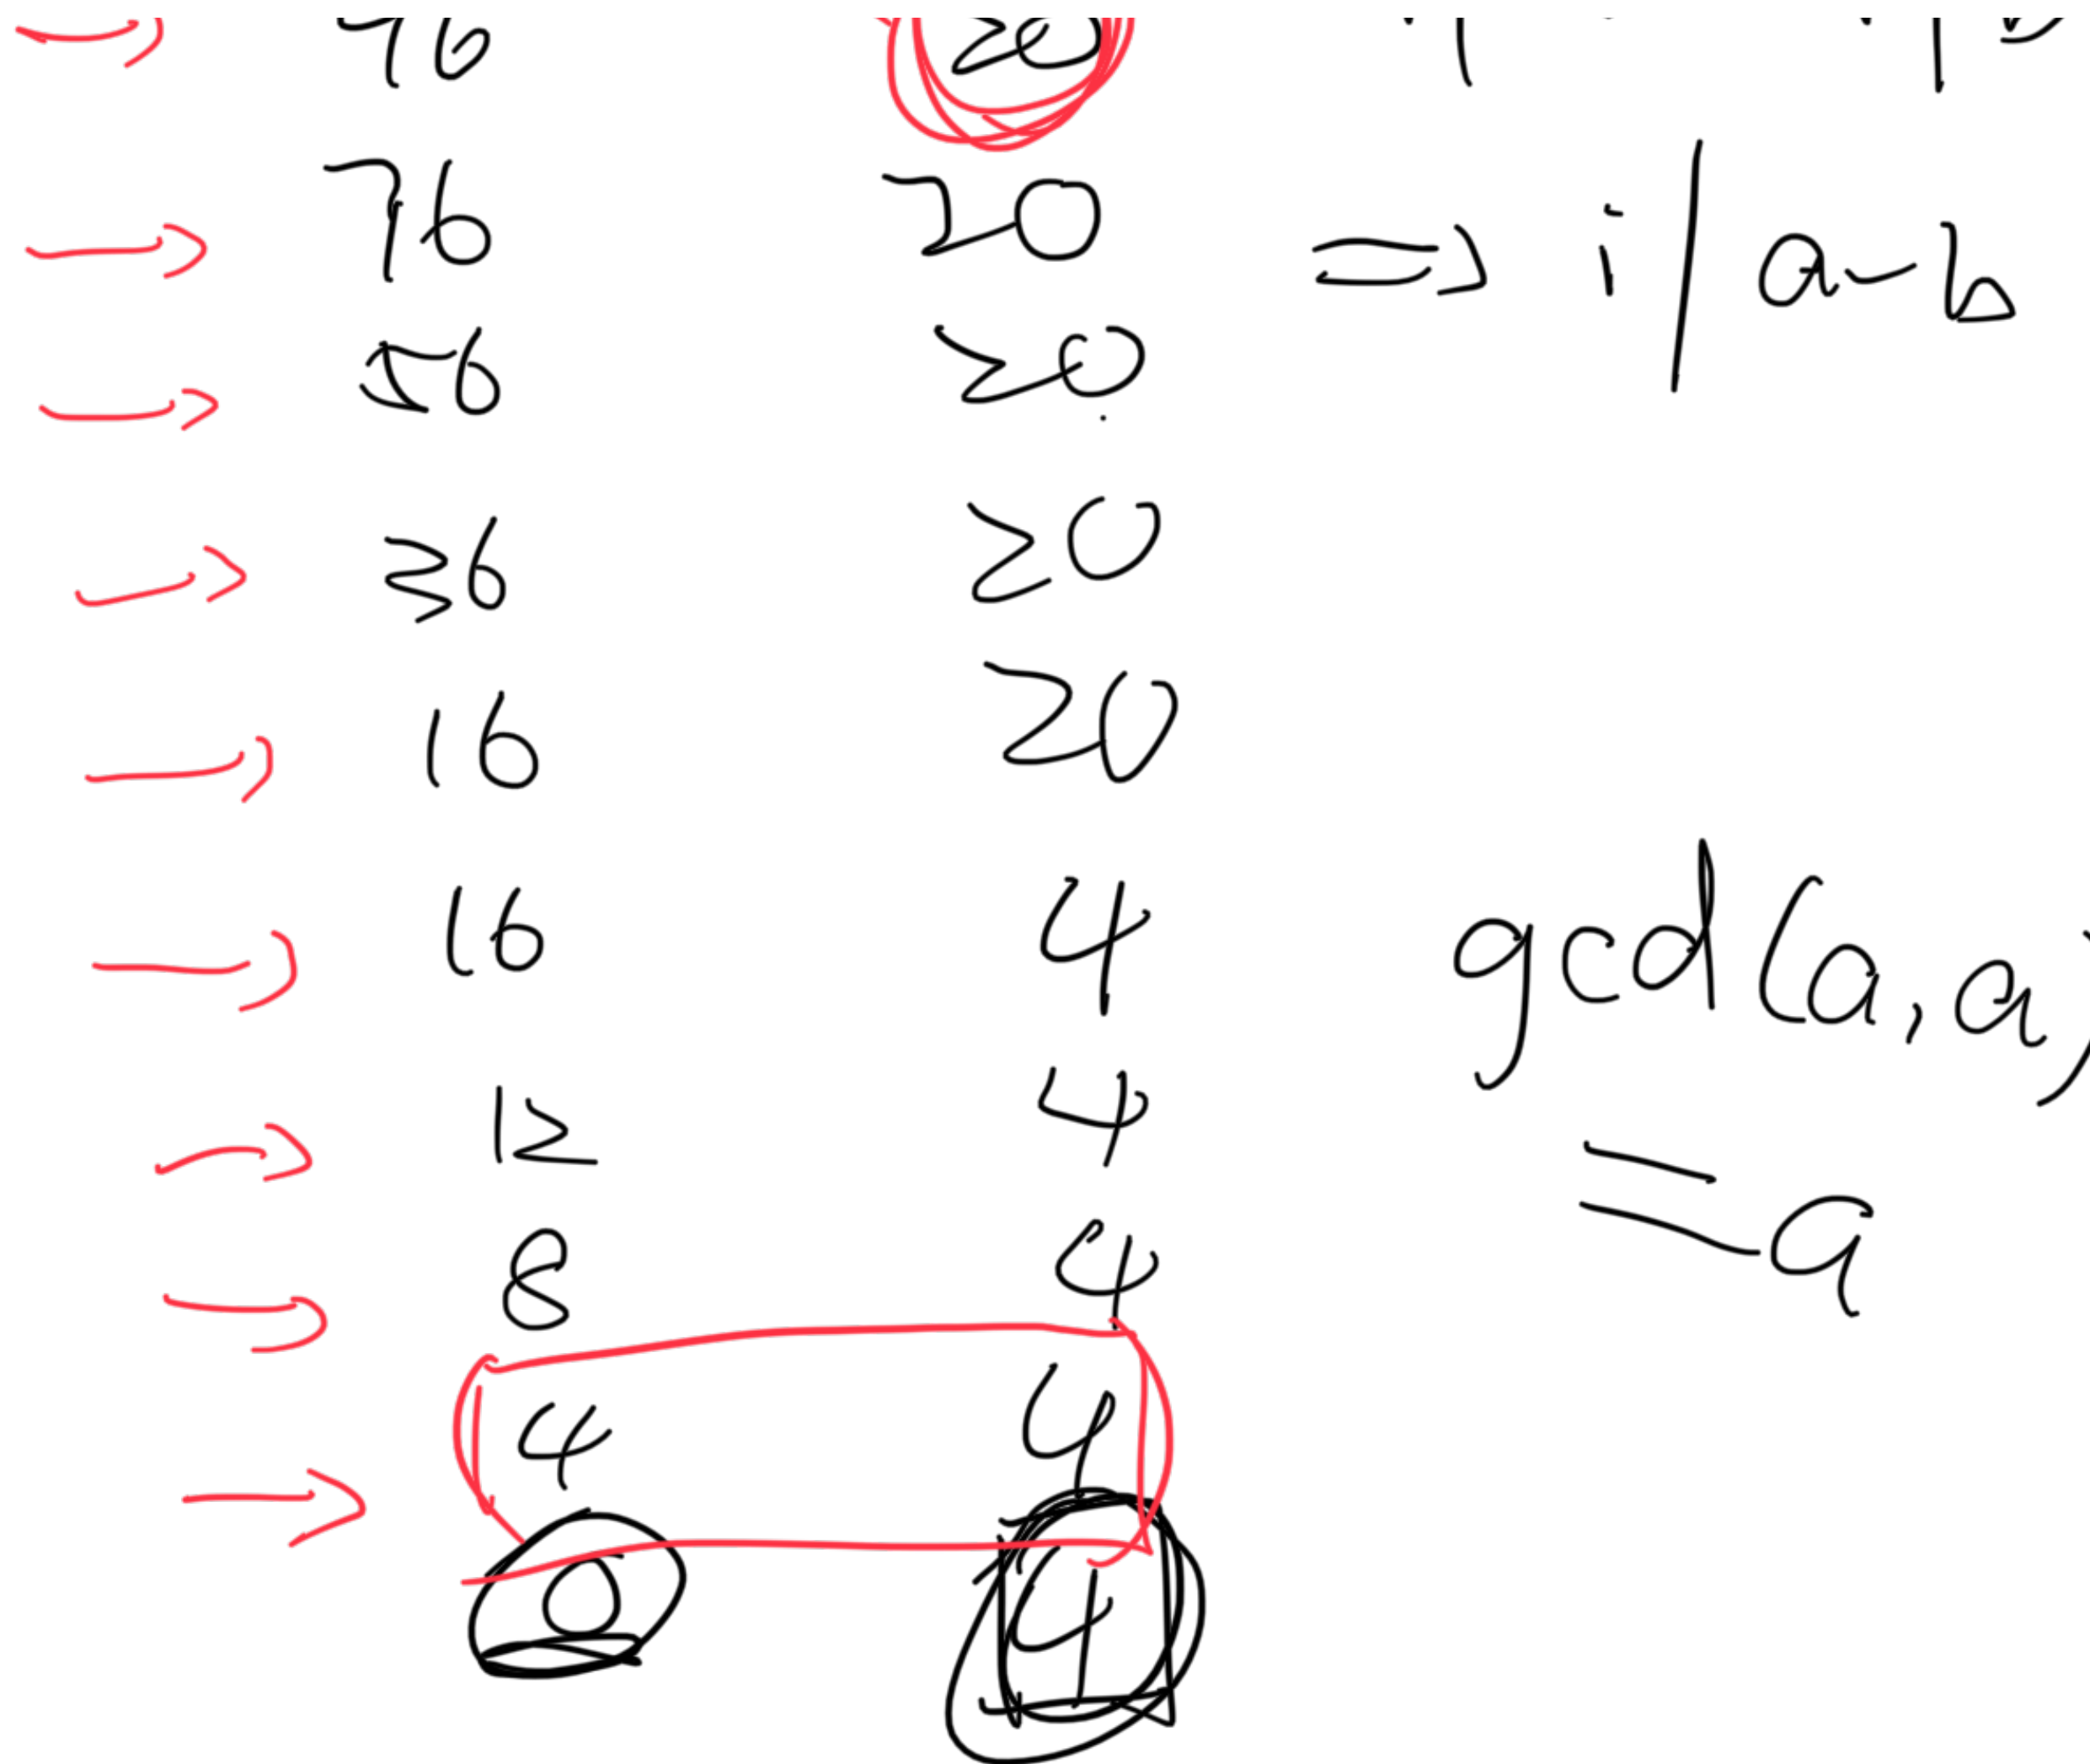 96 20
76 20 => i | a-b
56 20
36 20
16 20
16 4
gcd(a,a)
12 4
= a
8 4
4 4
0 4